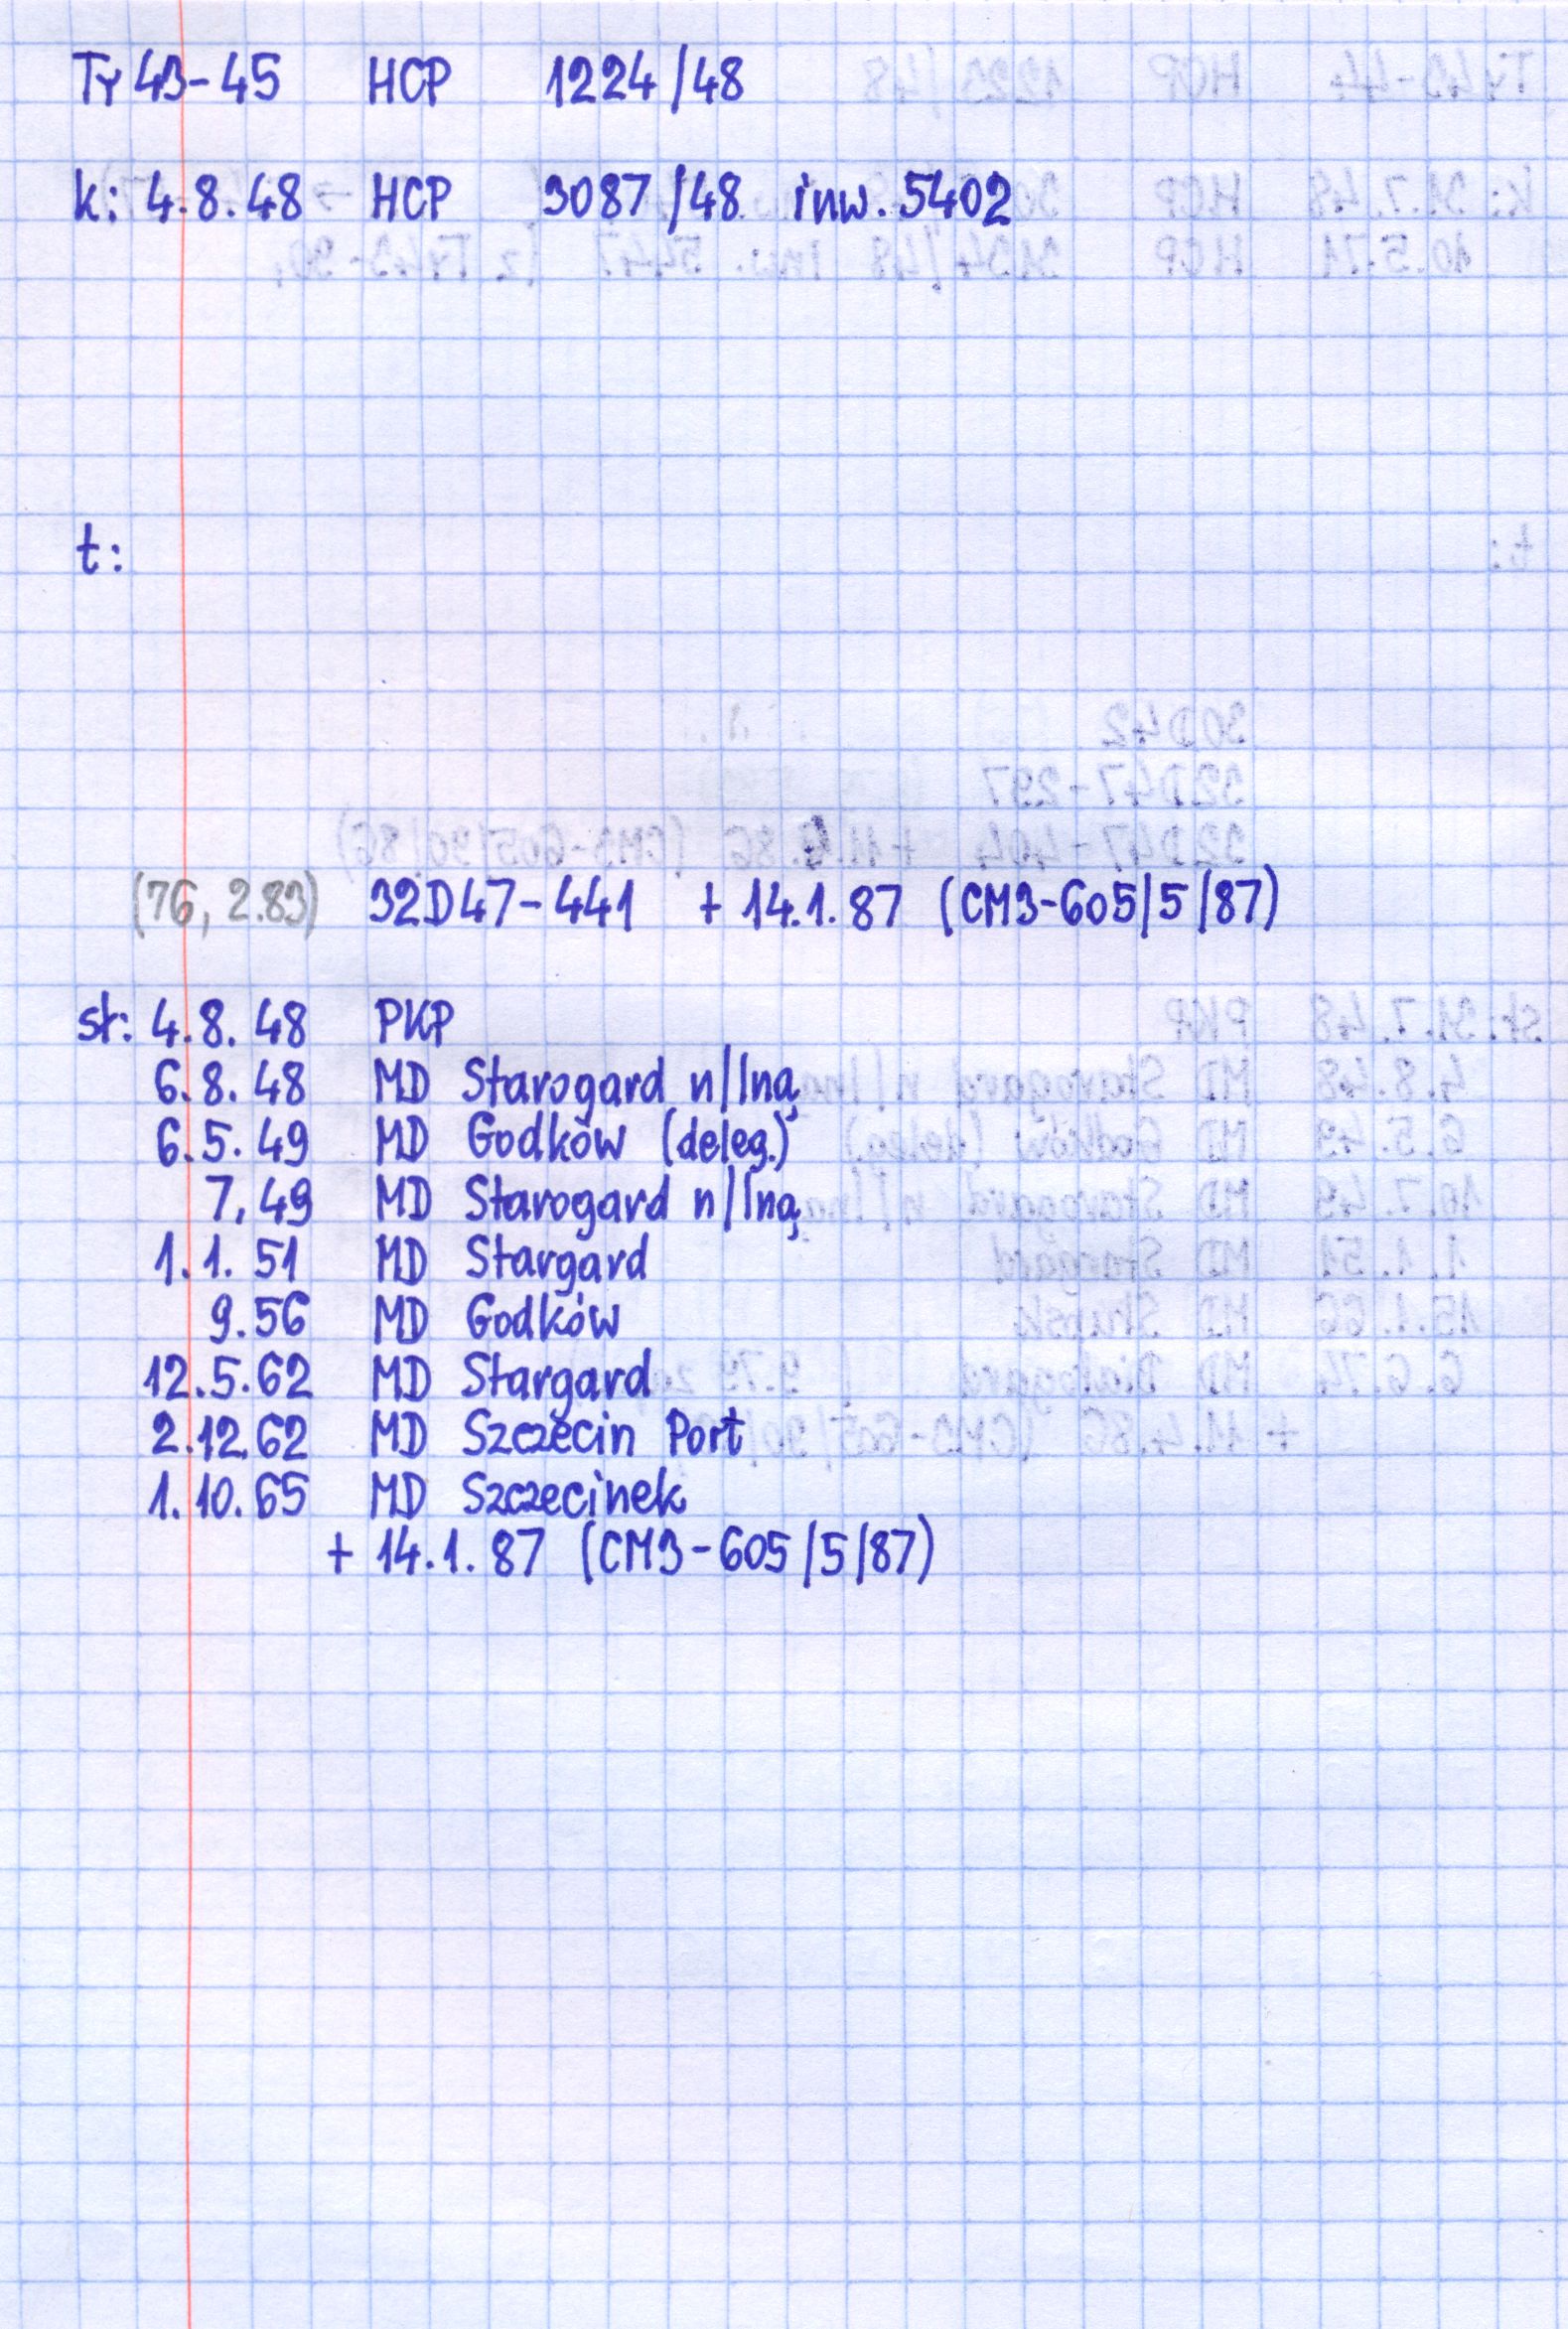 Ty43-45 HCP 1224/48
k: 4.8.48 HCP 3087/48 inw. 5402
t:
(76, 2.83) 32D47-441 + 14.1.87 (CM3-605/5/87)
st: 4.8.48 PKP
6.8.48 MD Starogard n/Iną
6.5.49 MD Godków (deleg.)
7,49 MD Starogard n/Iną
1.1.51 MD Stargard
9.56 MD Godków
12.5.62 MD Stargard
2.12.62 MD Szczecin Port
1.10.65 MD Szczecinek
+ 14.1.87 (CM3-605/5/87)